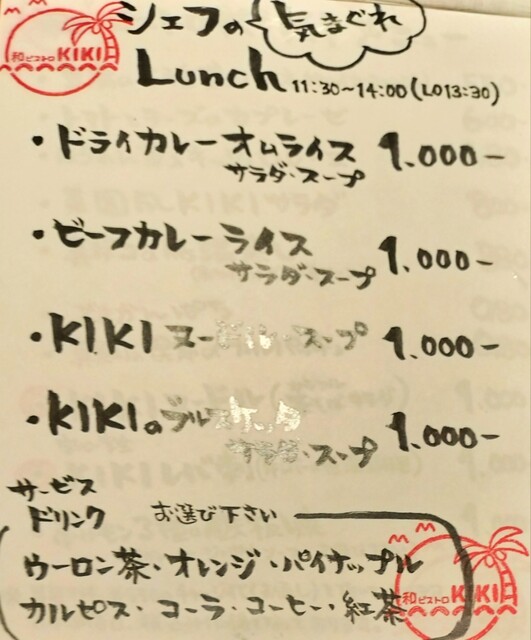 シェフの気まぐれ
和ビストロ KIKI
Lunch 11:30~14:00(LO13:30)
・ドライカレーオムライス 1.000-
サラダ・スープ
・ビーフカレーライス 1.000-
サラダ・スープ
・KIKIヌードル・スープ 1.000-
・KIKIのブルスケッタ 1.000-
サラダ・スープ
サービス
ドリンク お選び下さい
ウーロン茶・オレンジ・パイナップル
カルピス・コーラ・コーヒー・紅茶
和ビストロ KIKI